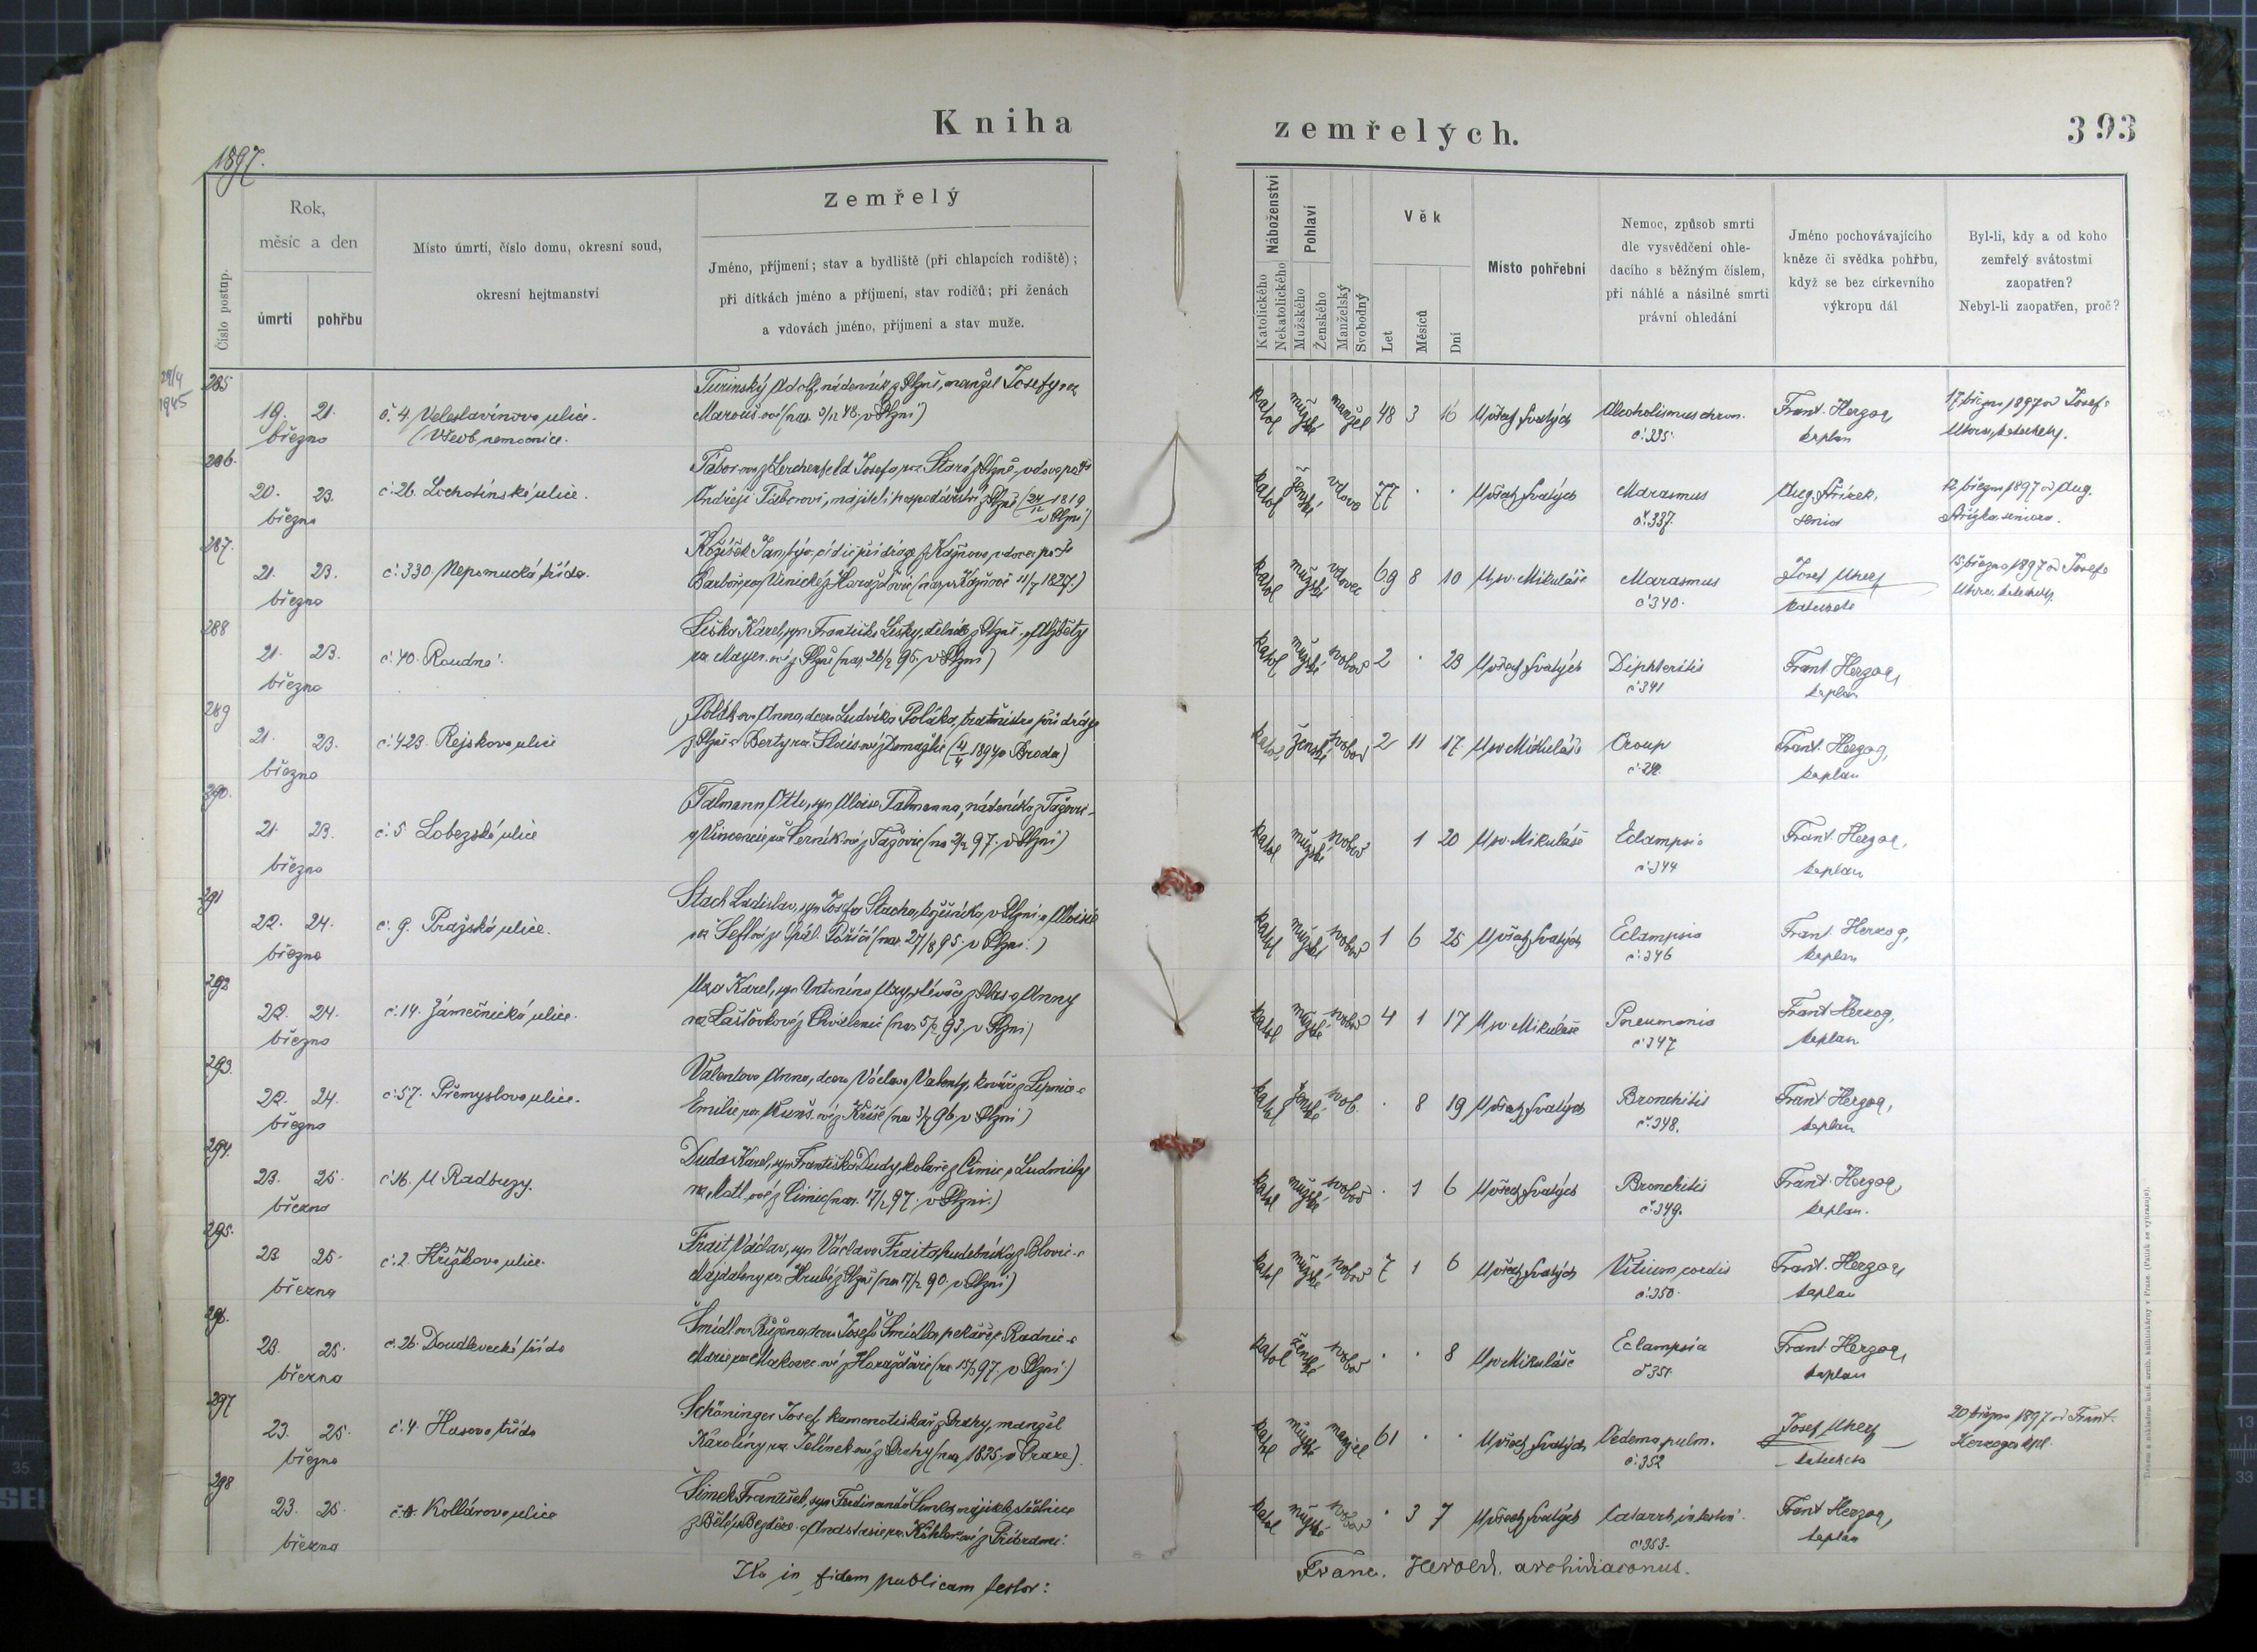 Kniha zemřelých.
393
1897.
Číslo postup.
Rok,
měsíc a den
úmrtí
pohřbu
Místo úmrtí, číslo domu, okresní soud,
okresní hejtmanství
Zemřelý
Jméno, příjmení; stav a bydliště (při chlapcích rodiště);
při dítkách jméno a příjmení, stav rodičů; při ženách
a vdovách jméno, příjmení a stav muže.
Náboženství
Katolického
Nekatolického
Pohlaví
Mužského
Ženského
Manželský
Svobodný
Věk
Let
Měsíců
Dní
Místo pohřební
Nemoc, způsob smrti
dle vysvědčení ohle-
dacího s běžným číslem,
při náhlé a násilné smrti
právní ohledání
Jméno pochovávajícího
kněze či svědka pohřbu,
když se bez církevního
výkropu dál
Byl-li, kdy a od koho
zemřelý svátostmi
zaopatřen?
Nebyl-li zaopatřen, proč?
285
19. 21.
března
č. 4. Veleslavínova ulice.
Všeob. nemocnice.
Turinský Adolf, nádenník z Plzně, manžel Josefy roz.
(nar. 3/12 48. v Plzni)
katol mužské manžel 48 3 16 U všech svatých Alcoholismus chron.
č. 335.
Frant. Herzog
kaplan
17. března 1897 od Josefa
286.
20. 23.
března
č. 26. Lochotínská ulice.
Tábor roz. z Lerchenfeld Josefa, vdova po
Ondřeji Táborovi, majiteli hospodářství z Plzně (24/12 1819
v Plzni)
katol ženské vdova 77 . . U všech svatých Marasmus
č. 337.
Aug. Střízek,
senior
12. března 1897 od Aug.
Střízka, seniora.
287.
21. 23.
března
č. 330. Nepomucká třída.
Kožíšek Jan, vdovec po
katol mužské vdovec 69 8 10 U sv. Mikuláše Marasmus
č. 340.
Josef Uherz
katecheta
15. března 1897 od Josefa
288
21. 23.
března
č. 40. Roudná.
Liška Karel, syn Františka Lišky, dělníka z Plzně a Alžběty
roz. Mayer.ové z Plzně (nar. 26/2 95. v Plzni)
katol mužské svobod 2 . 23 U všech svatých Diphteritis
č. 341
Frant. Herzog,
kaplan
289
21. 23.
března
č. 423. Rejskova ulice
Poláková Anna, dcera Ludvíka Poláka, při dráze
z Plzně a Berty roz. z Domažlic (4/4 1894 v Brodu)
katol ženské svobod 2 11 17 U sv. Mikuláše Croup
Frant. Herzog,
kaplan
290.
21. 23.
března
č. 5. Lobezská ulice
Talmann Otto, syn Aloisa Talmanna, nádeníka z Tažovic
a Vincencie z Tažovic v Plzni)
katol mužské svobod 1 20 U sv. Mikuláše Eclampsia
č. 344
Frant. Herzog,
kaplan
291
22. 24.
března
č. 9. Pražská ulice.
Stach Ladislav, syn Josefa Stacha, v Plzni a Aloisie
Spál. Poříčí (nar. 27/8 95. v Plzni.)
katol mužské svobod 1 6 25 U všech svatých Eclampsia
č. 346
Frant. Herzog,
kaplan
292
22. 24.
března
č. 14. Zámečnická ulice.
Karel, syn Antonína slévače z Plas a Anny
roz. Laštovkové z Chválenic (nar. 5/2 93. v Plzni)
katol mužské svobod 4 1 17 U sv. Mikuláše Pneumonia
č. 347
Frant Herzog,
kaplan
293.
22. 24.
března
č. 57. Přemyslova ulice.
Valentova Anna, dcera Václava Valenty, kováře z
Emilie, roz. Kunš.ové z (nar. 3/7 96. v Plzni)
katol ženské svob. . 8 19 U všech svatých Bronchitis
č. 348.
Frant Herzog,
kaplan
294.
23. 25.
března
č. 16. U Radbuzy.
Duda Karel, syn Františka Dudy, koláře z Čimic a Ludmily
roz. Matl.ové z Čimic (nar. 17/2 97. v Plzni.)
katol mužské svobod . 1 6 U všech svatých Bronchitis
č. 349.
Frant. Herzog,
kaplan.
295.
23 25.
března
č. 2. Křižkova ulice.
Frait Václav, syn Václava Fraita, hudebníka z Blovic a
Majdaleny roz. Hrubé z Plzně (nar. 17/2 90. v Plzni)
katol mužské svobod 7 1 6 U všech svatých Vitium cordis
č. 350.
Frant. Herzog,
kaplan
296.
23. 25.
března
č. 26. Doudlevecká třída
Šmídlova Růžena, dcera Josefa Šmídla, pekaře z Radnic a
Marie roz. Makovec.ové z Horažďovic (nar. 15/3 97. v Plzni)
katol ženské svobod . . 8 U sv. Mikuláše Eclampsia
č. 351.
Frant Herzog,
kaplan
297
23. 25.
března
č. 4. Husova třída
Schöninger Josef, kamenotiskař z Prahy, manžel
Karolíny roz. Jelínek.ové z Prahy (nar. 1835 v Praze).
katol mužské manžel 61 . . U všech svatých Oedema pulm.
č. 352
Josef Uherz
katecheta
20. března 1897 od Frant.
Herzoga kpl.
298
23. 25.
března
Kollárova ulice
Šimek František, syn Ferdinanda Šimka, majitele
z Bělé p. Bezdězem a Anastasie roz. Köhler.ové z Příbrami.
katol mužské svobod . 3 7 U všech svatých Catarrh. intestin.
č. 353.
Frant Herzog,
kaplan
Ita in fidem publicam testor:
Franc. Herold, archidiaconus.